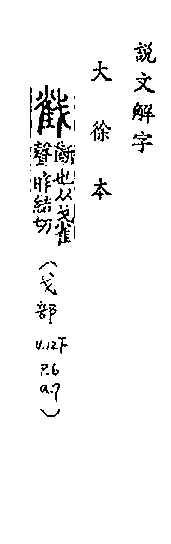 説文解字
大徐本
斷也从戈雀
聲昨結切
(戈部
v.12下
P.6
a.7)